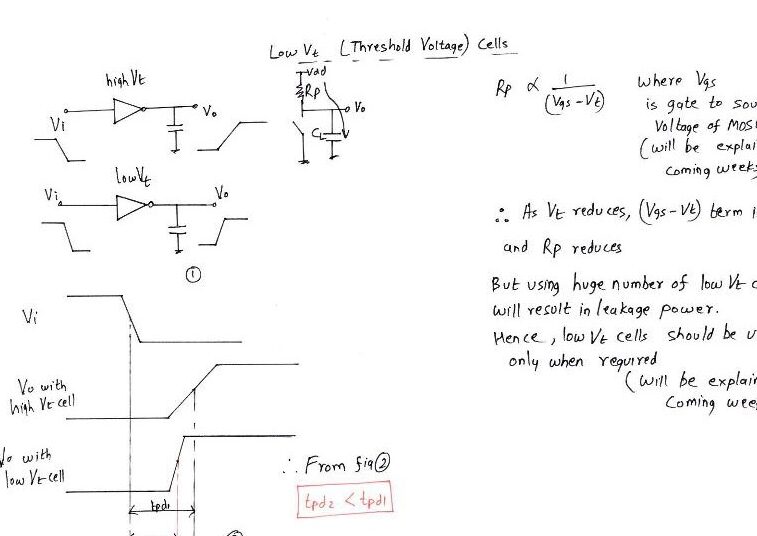 Low Vt (Threshold Voltage) Cells
high Vt
Vi
Vo
Vdd
Rp
Vo
CL
low Vt
Vi
Vo
①
Rp ∝ 1/(Vgs - Vt)
where Vgs
is gate to sou
Voltage of MOS
(will be explai
Coming week
∴ As Vt reduces, (Vgs - Vt) term i
and Rp reduces
But using huge number of low Vt c
will result in leakage power.
Hence, low Vt cells should be u
only when required
(will be explain
Coming wee
Vi
Vo with
high Vt cell
Vo with
low Vt cell
tpd1
∴ From fig ②
tpd2 < tpd1